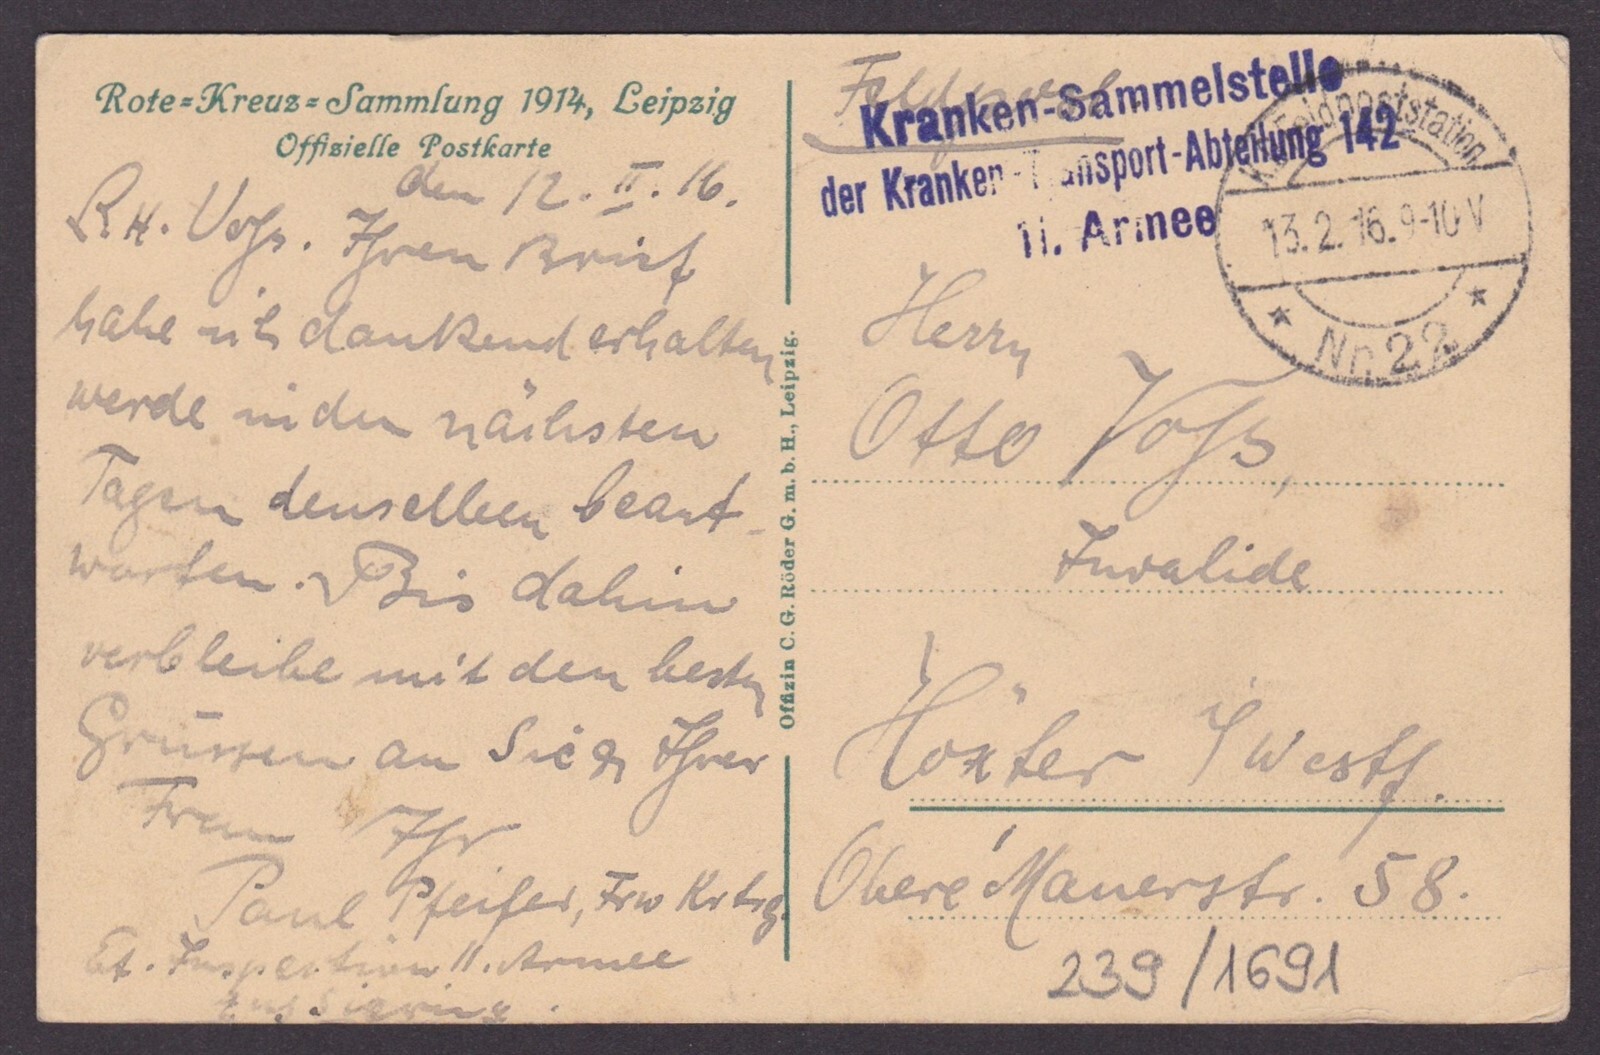 Rote-Kreuz-Sammlung 1914, Leipzig
Offizielle Postkarte
den 12. II. 16.
Voß. Ihren Brief
habe ich dankend erhalten
werde in den nächsten
Tagen denselben beant-
worten. Bis dahin
verbleibe mit den besten
Grüssen an Sie & Ihrer
Frau Ihr
Paul Pfeifer, Frw Krkpfg.
Et. Inspektion 11. Armee
Offizin C. G. Röder G. m. b. H., Leipzig.
Feldpost
Kranken-Sammelstelle
der Kranken-Transport-Abteilung 142
11. Armee
K.D. Feldpoststation
13.2.16. 9-10 V
* Nr. 22 *
Herrn
Otto Voß,
Invalide
Höxter i/Westf.
Obere Mauerstr. 58.
239/1691